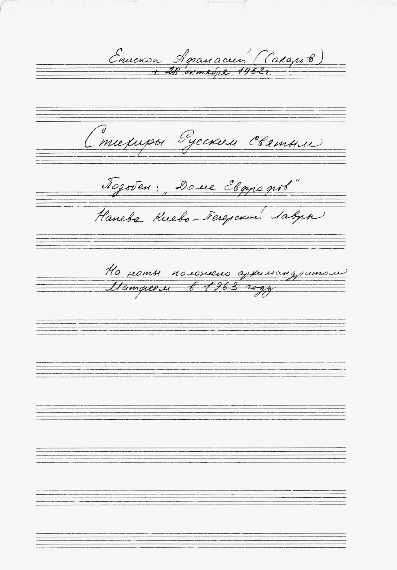 Епископ Афанасий (Сахаров)
† 28 октября 1962г.
Стихиры Русским Святым
Подобен: „Доме Евфрафов"
Напева Киево-Печерской Лавры
На ноты положено архимандритом
Матфеем в 1963 году